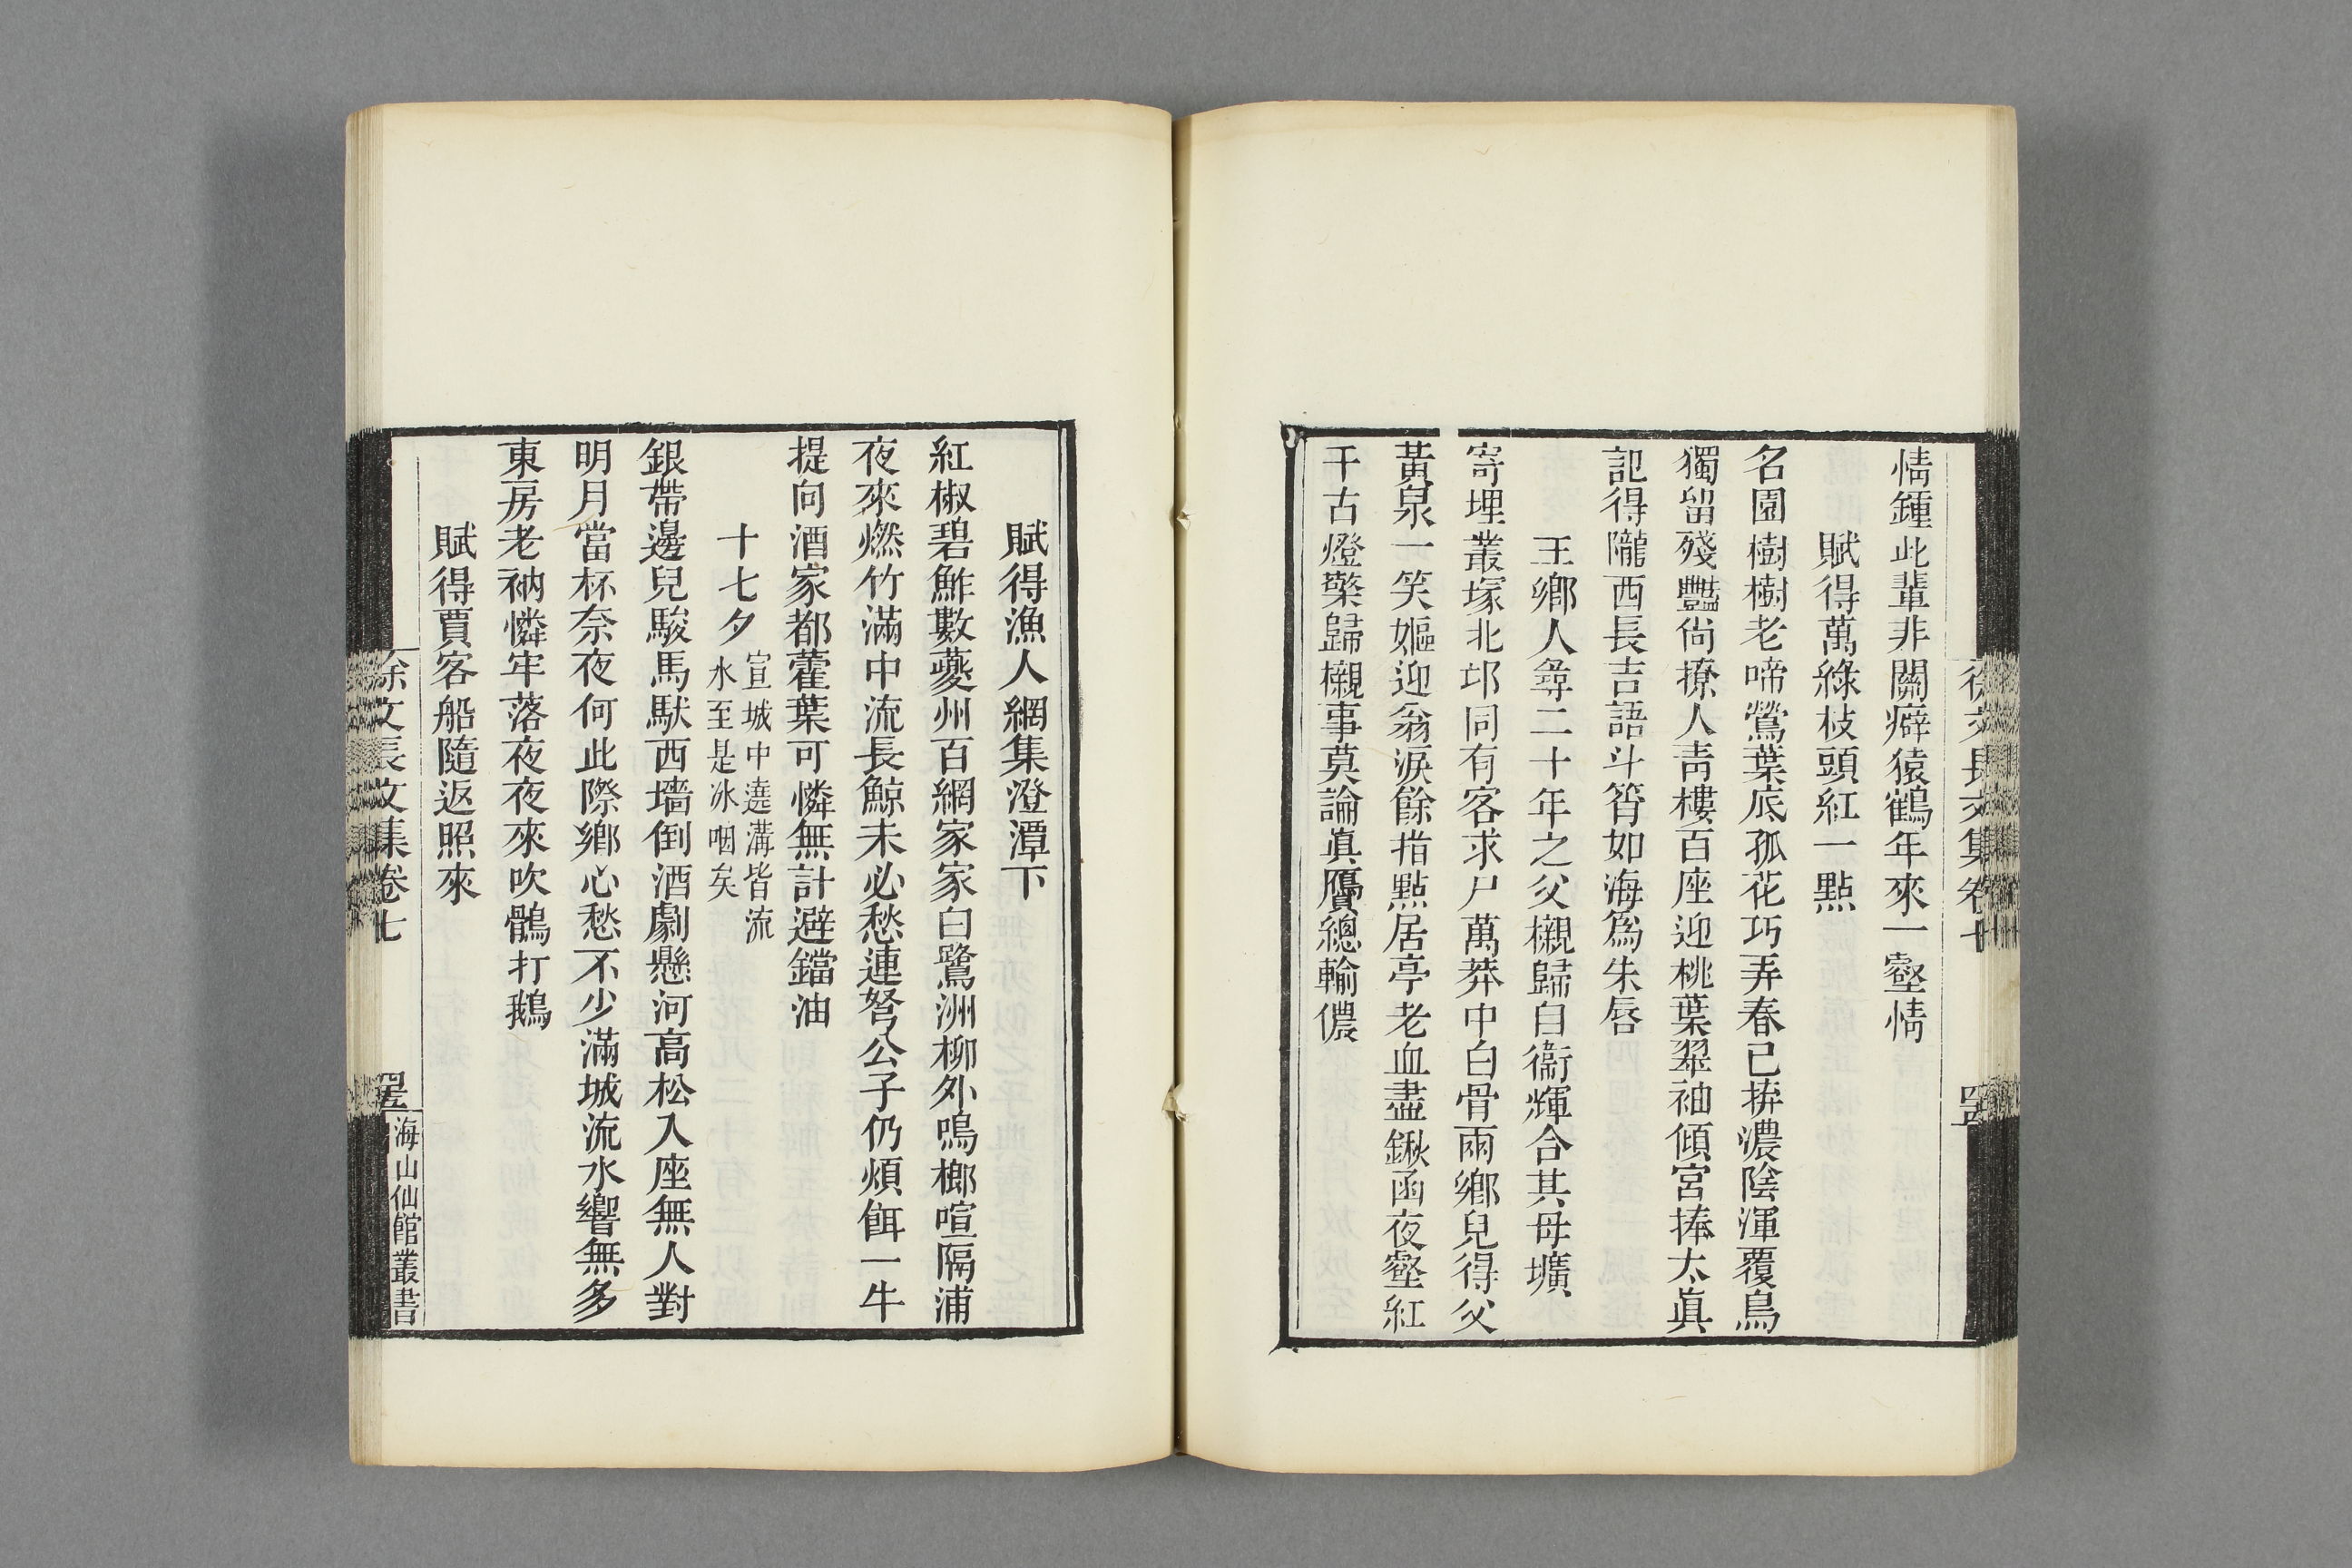 情鍾此輩非關癖猿鶴年來一壑情
賦得萬綠枝頭紅一點
名園樹樹老啼鶯葉底孤花巧弄春已拚濃陰渾覆鳥
獨留殘豔尙撩人靑樓百座迎桃葉翠袖傾宮捧太眞
記得隴西長吉語斗筲如海爲朱唇
王鄉人尋二十年之父櫬歸自衞輝合其母壙
寄埋叢塚北邙同有客求尸萬莽中白骨兩鄉兒得父
黃泉一笑嫗迎翁淚餘指點居亭老血盡鍬函夜壑紅
千古燈檠歸櫬事莫論眞贋總輸儂
徐文長文集卷七
賦得漁人網集澄潭下
紅椒碧鮓數夔州百網家家白鷺洲柳外鳴榔喧隔浦
夜來燃竹滿中流長鯨未必愁連弩公子仍煩餌一牛
提向酒家都藿葉可憐無計避鐺油
十七夕宣城中遶溝皆流
水至是冰咽矣
銀帶邊兒駿馬馱西墻倒酒劇懸河高松入座無人對
明月當杯奈夜何此際鄉心愁不少滿城流水響無多
東房老衲憐牢落夜夜來吹鶻打鵝
賦得賈客船隨返照來
徐文長文集卷七
海山仙館叢書